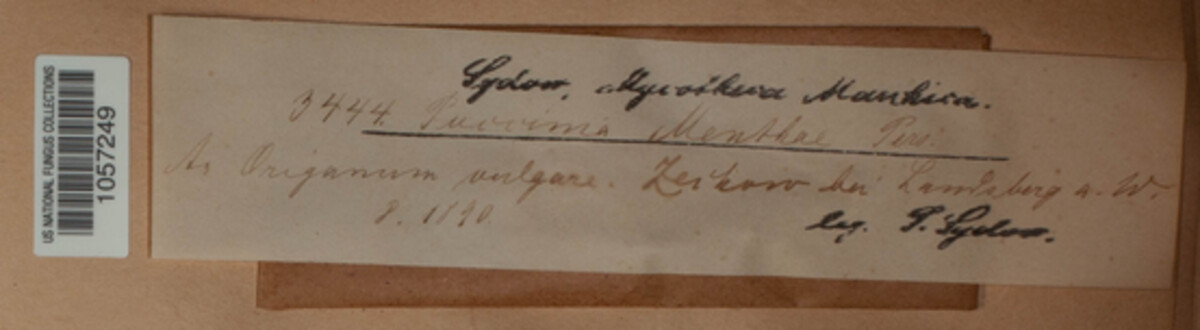 US NATIONAL FUNGUS COLLECTIONS
1057249
Sydow, Mycotheca Marchica.
3444. Puccinia Menthae Pers.
An Origanum vulgare. Zechow bei Landsberg a. W.
8. 1890.
leg. P. Sydow.